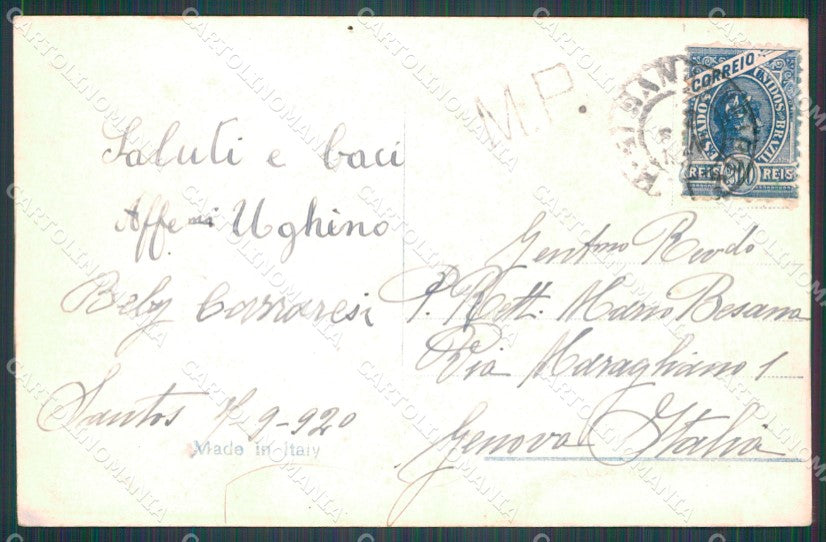 Saluti e baci
Affe.mi Ughino
Beby Carraresi
Santos 7/9-920
Made in Italy
M.P.
CORREIO
ESTADOS UNIDOS BRAZIL
REIS 200 REIS
Gent.mo Rev.do
P. Rett. Mario Besana
Via Maragliano 1
Genova Italia
CARTOLINOMANIA